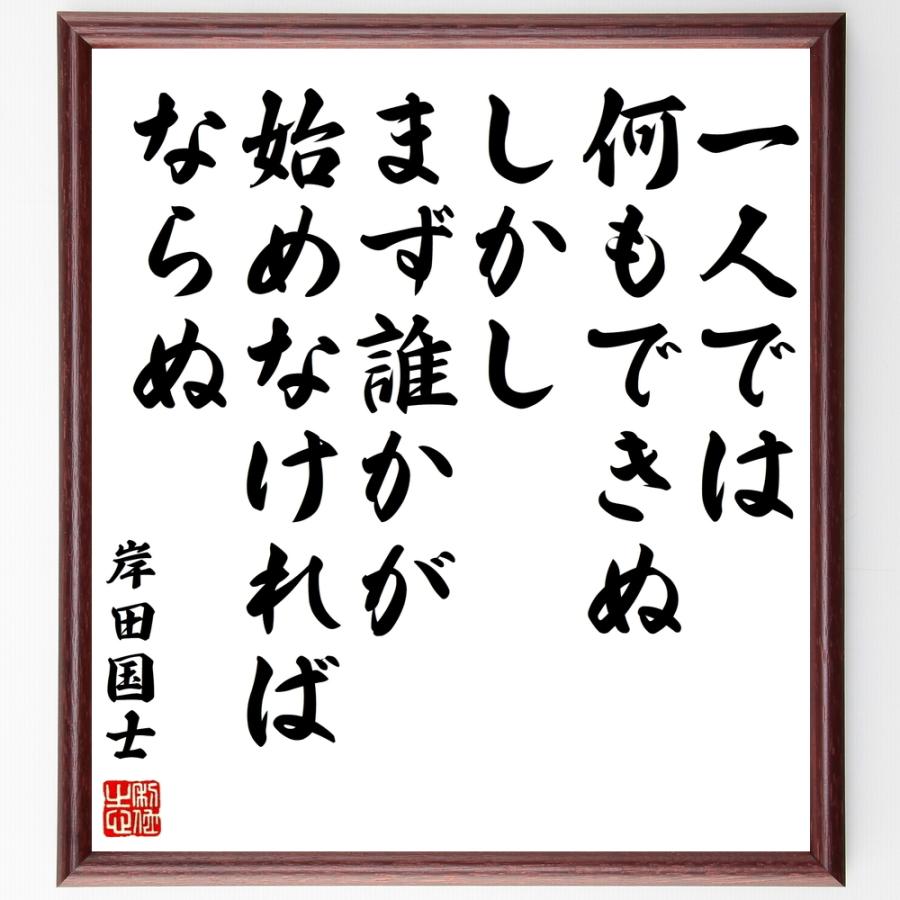 一人では
何もできぬ
しかし
まず誰かが
始めなければ
ならぬ
岸田国士